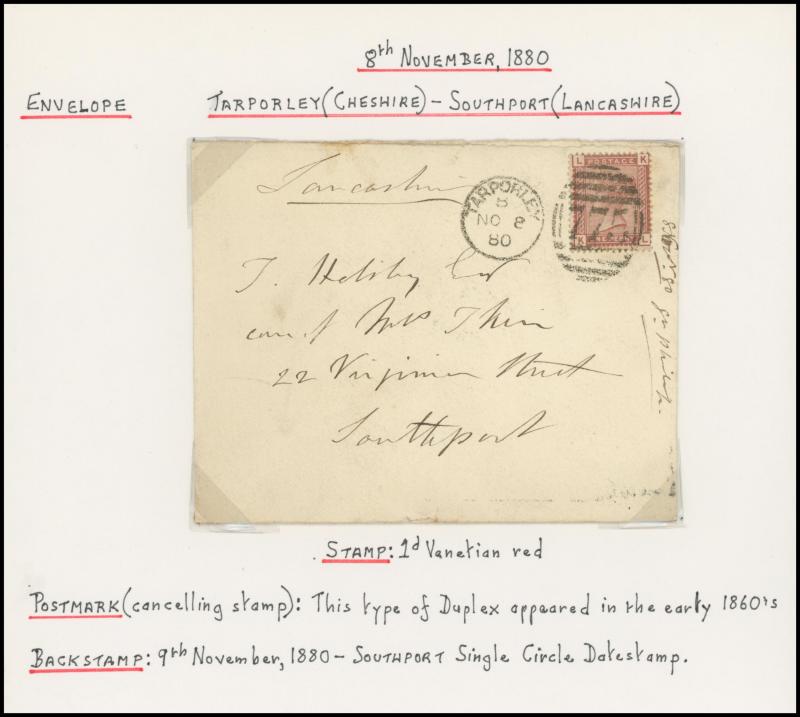 8th NOVEMBER, 1880
ENVELOPE TARPORLEY (CHESHIRE) - SOUTHPORT (LANCASHIRE)
Lancashire
TARPORLEY
8
NO 8
80
L POSTAGE K
775
K L
T. Helsby Esq
care of Mrs
22 Virginia Street
Southport
8 Nov. 80
STAMP: 1d Vanetian red
POSTMARK (cancelling stamp): This type of Duplex appeared in the early 1860's
BACKSTAMP: 9th November, 1880 - SOUTHPORT Single Circle Datestamp.